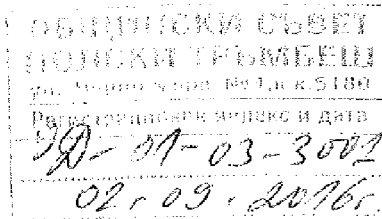 ОБЩИНСКИ СЪВЕТ
ПОЛСКИ ТРЪМБЕШ
ул. Черно море №1, п.к. 5180
Регистрационен индекс и дата
ЗД-01-03-3001
02.09.2016г.